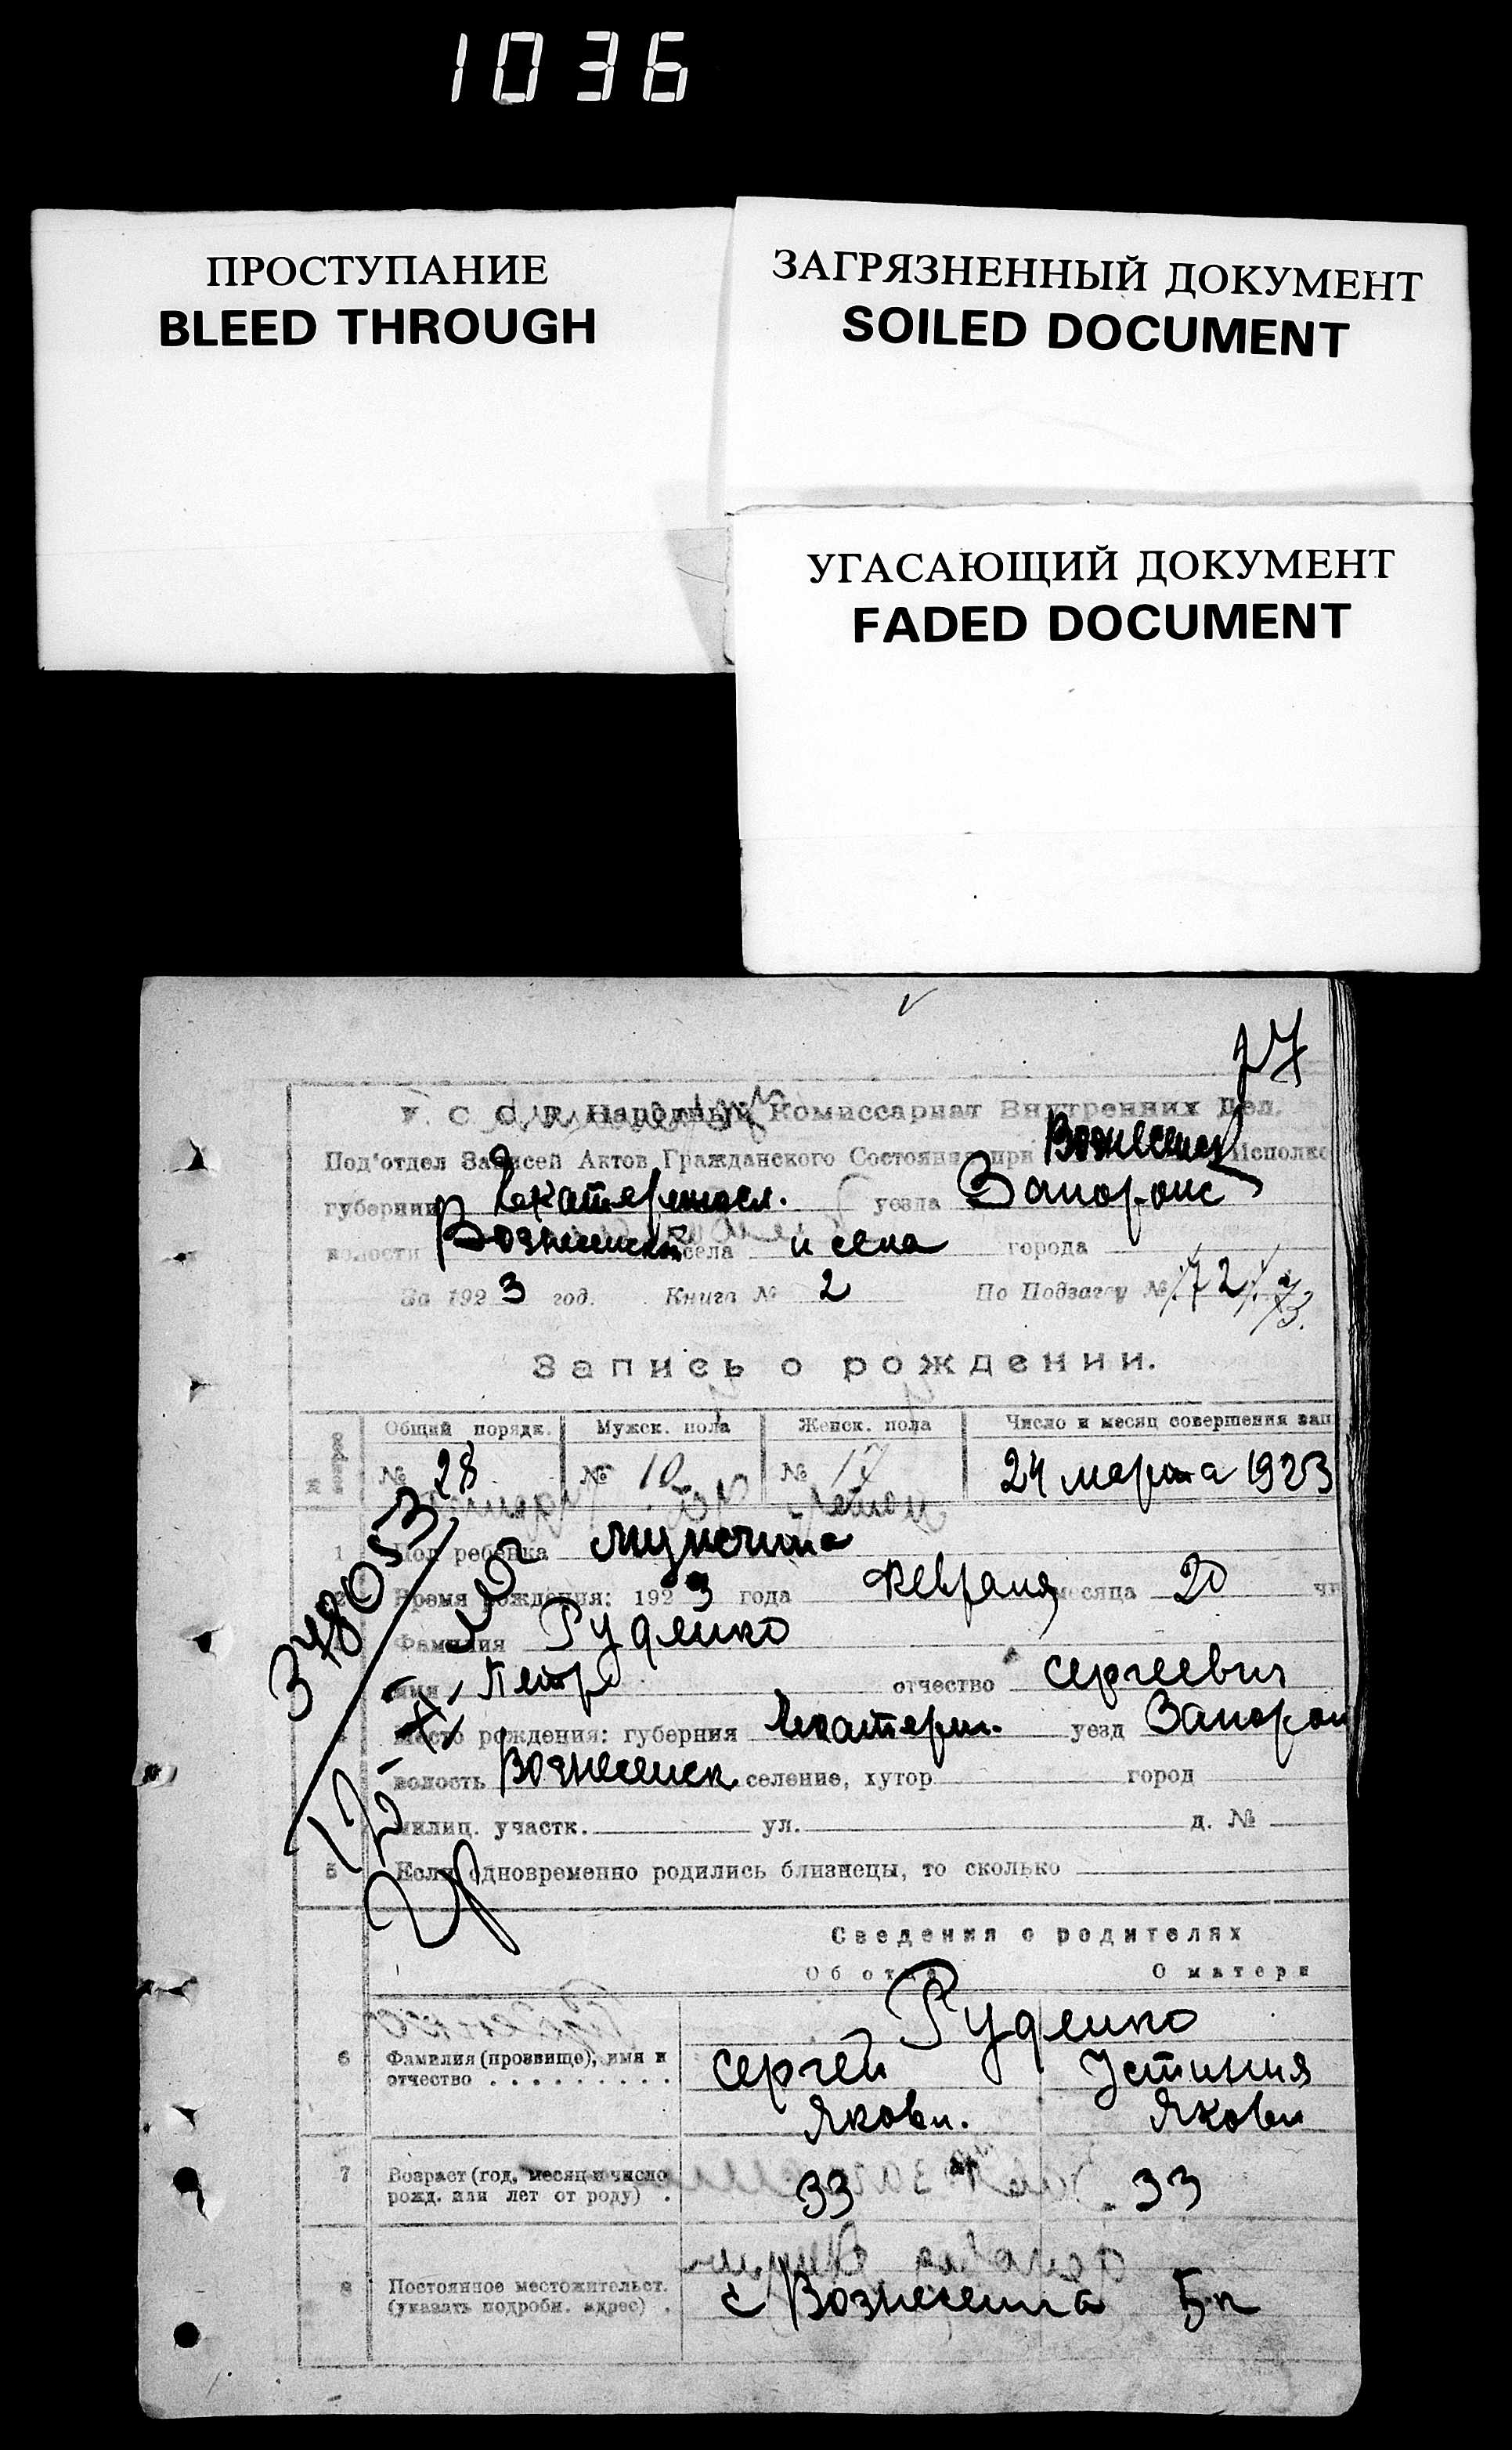 1036
ПРОСТУПАНИЕ
BLEED THROUGH
ЗАГРЯЗНЕННЫЙ ДОКУМЕНТ
SOILED DOCUMENT
УГАСАЮЩИЙ ДОКУМЕНТ
FADED DOCUMENT
17
У. С. С. Р. Народный Комиссариат Внутренних Дел.
Под'отдел Записей Актов Гражданского Состояния при Вознесенск Исполко
губернии Екатериносл. уезда Запорожс
волости Вознесенской села и села города
За 1923 год. Книга № 2 По Подзагсу № 72
Запись о рождении.
№ вопроса Общий порядк. Мужск. пола Женск. пола Число и месяц совершения зап
№ 28 № № 17 24 марта 1923
1 Пол ребенка мужчина
2 Время рождения: 1923 года Февраля месяца 20 чи
Фамилия Руденко
имя Петр отчество Сергеевич
4 Место рождения: губерния Екатерин. уезд Запорож
волость Вознесенск. селение, хутор город
милиц. участк. ул. д. №
5 Если одновременно родились близнецы, то сколько
348053
Сведения о родителях
Об отце О матери
Руденко
6 Фамилия (прозвище), имя и отчество Сергей Устиния
Яковл. Яковл
7 Возраст (год, месяц и число рожд. или лет от роду) 33 33
8 Постоянное местожительст. (указать подробн. адрес) с Вознесенка